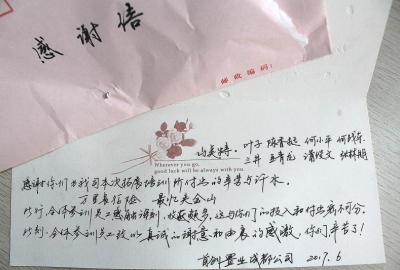 感谢信
邮政编码:
Wherever you go,
good luck will be always with you.
叶子 陈香超 何小平
三井
感谢你们为我司本次拓展培训所付出的辛苦与汗水。
万里长征险 最忆夹金山
此行,全体参训员工感触深刻,收获颇多,这与你们的投入和付出密不可分。
此刻,全体参训员工致以真诚的谢意和由衷的感激,你们辛苦了!
首创置业成都公司 2017.6